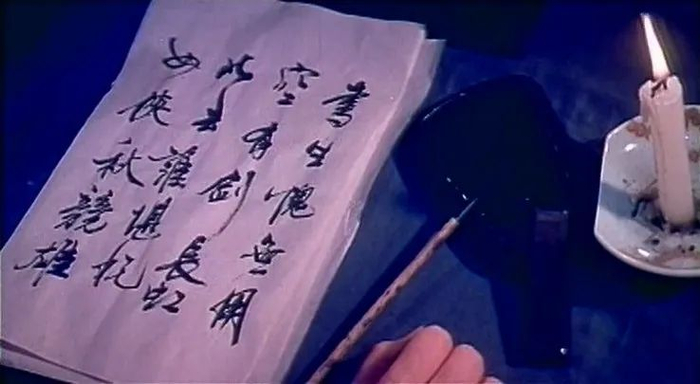 書生愧無用
空有劍長虹
此去蘿堪托
女俠秋競雄